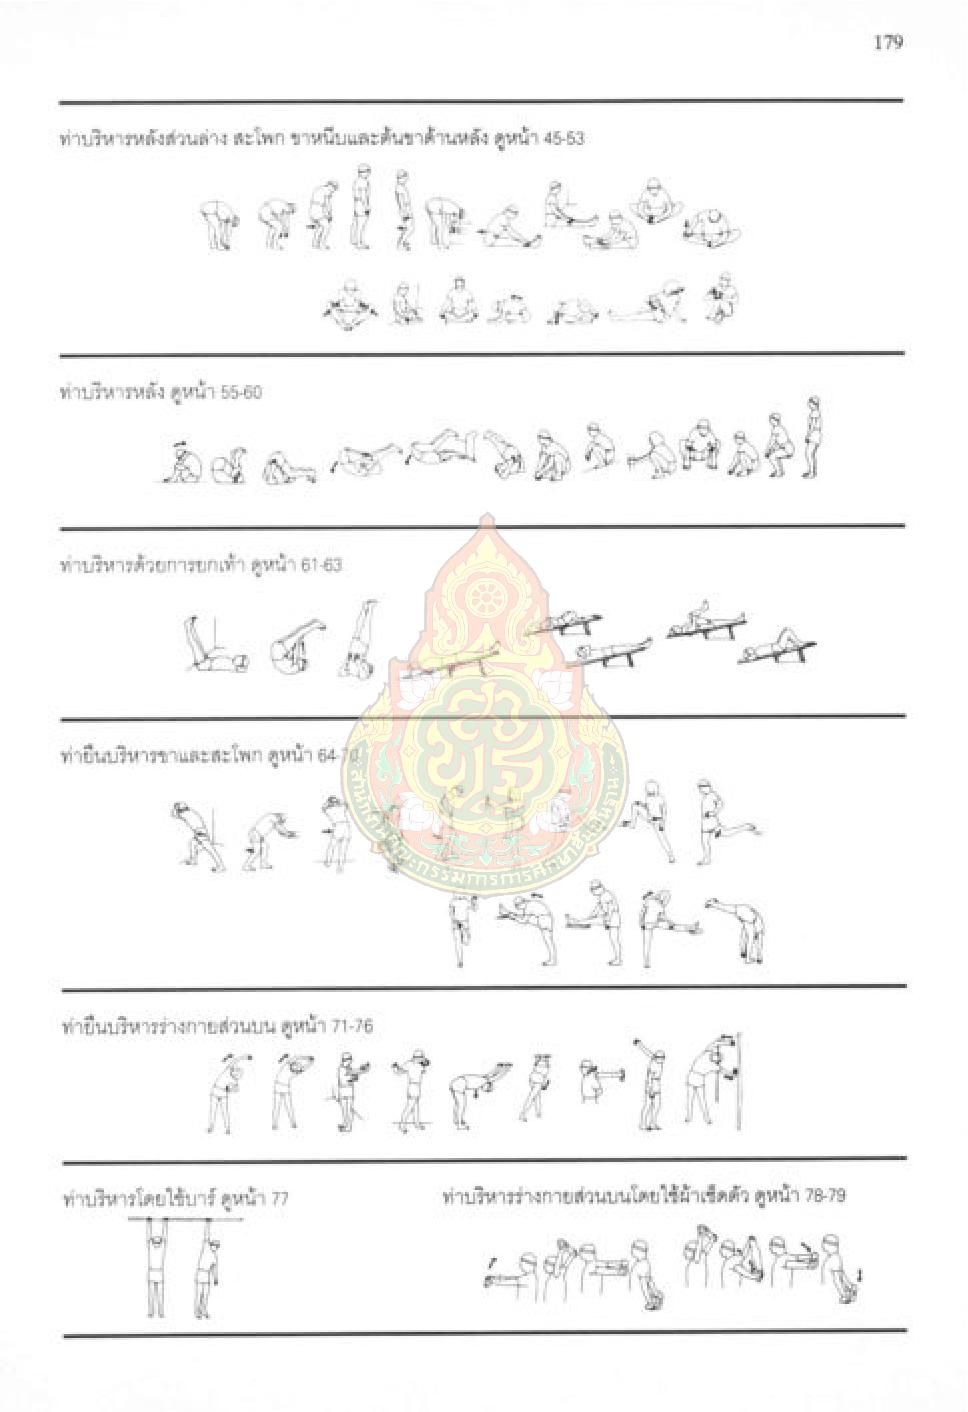 179
ท่าบริหารหลังส่วนล่าง สะโพก ขาหนีบและต้นขาด้านหลัง ดูหน้า 45-53
ท่าบริหารหลัง ดูหน้า 55-60
ท่าบริหารด้วยการยกเท้า ดูหน้า 61-63
ท่ายืนบริหารขาและสะโพก ดูหน้า 64-70
สำนักงานคณะกรรมการการศึกษาขั้นพื้นฐาน
ท่ายืนบริหารร่างกายส่วนบน ดูหน้า 71-76
ท่าบริหารโดยใช้บาร์ ดูหน้า 77
ท่าบริหารร่างกายส่วนบนโดยใช้ผ้าเช็ดตัว ดูหน้า 78-79